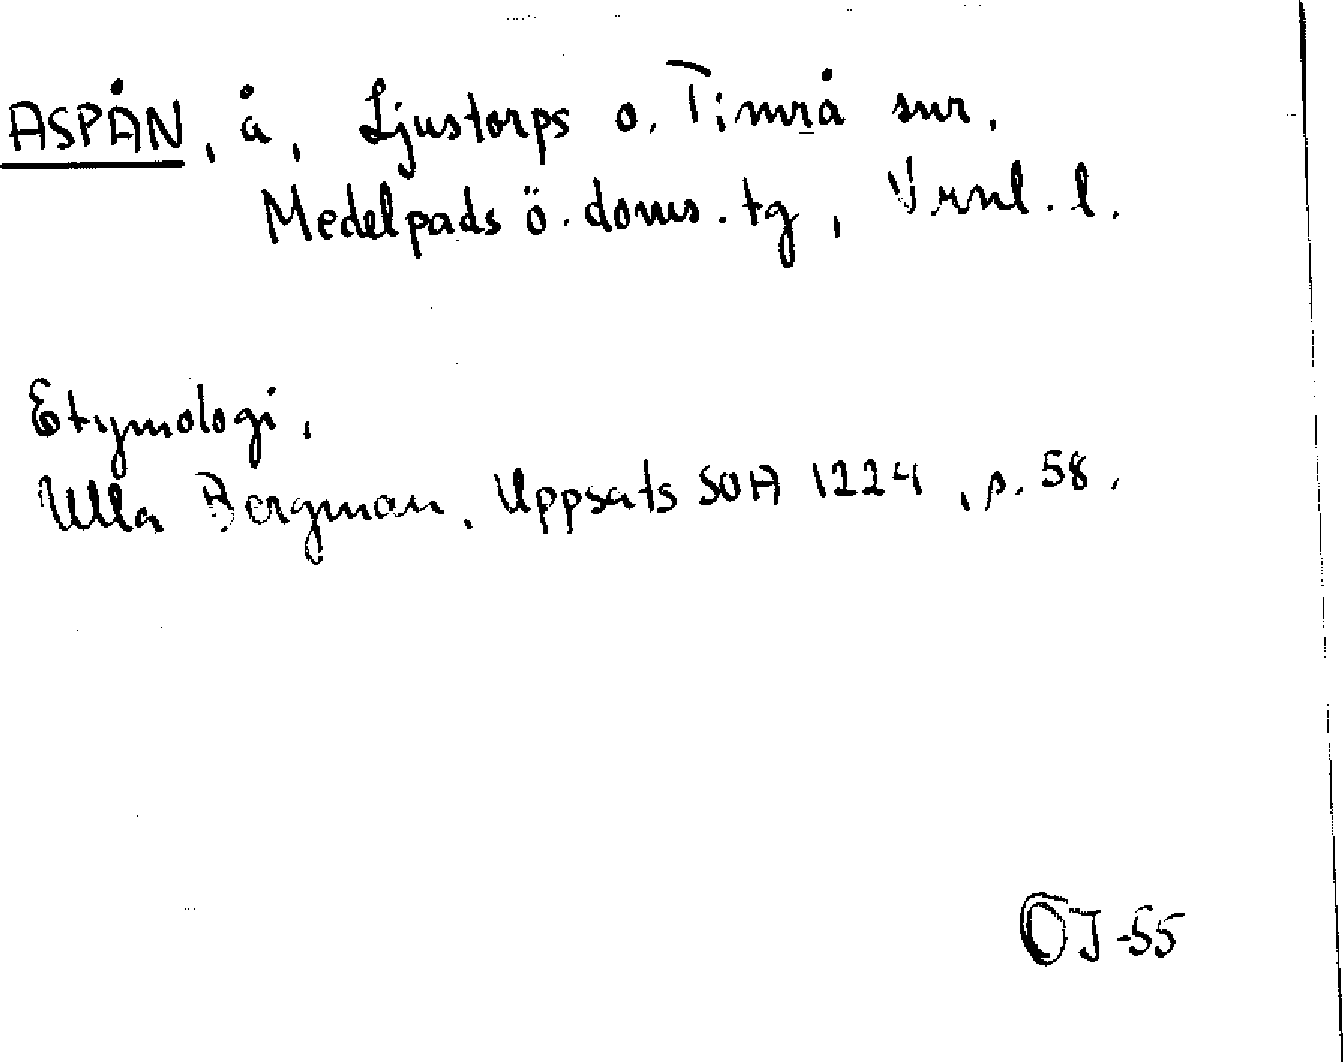 ASPÅN, å, Ljustorps o. Timrå snr,
Medelpads ö. doms. tg, Vrnl. l.
Etymologi,
Ulla Bergman, Uppsats SOA 1224, s. 58.
OJ-55